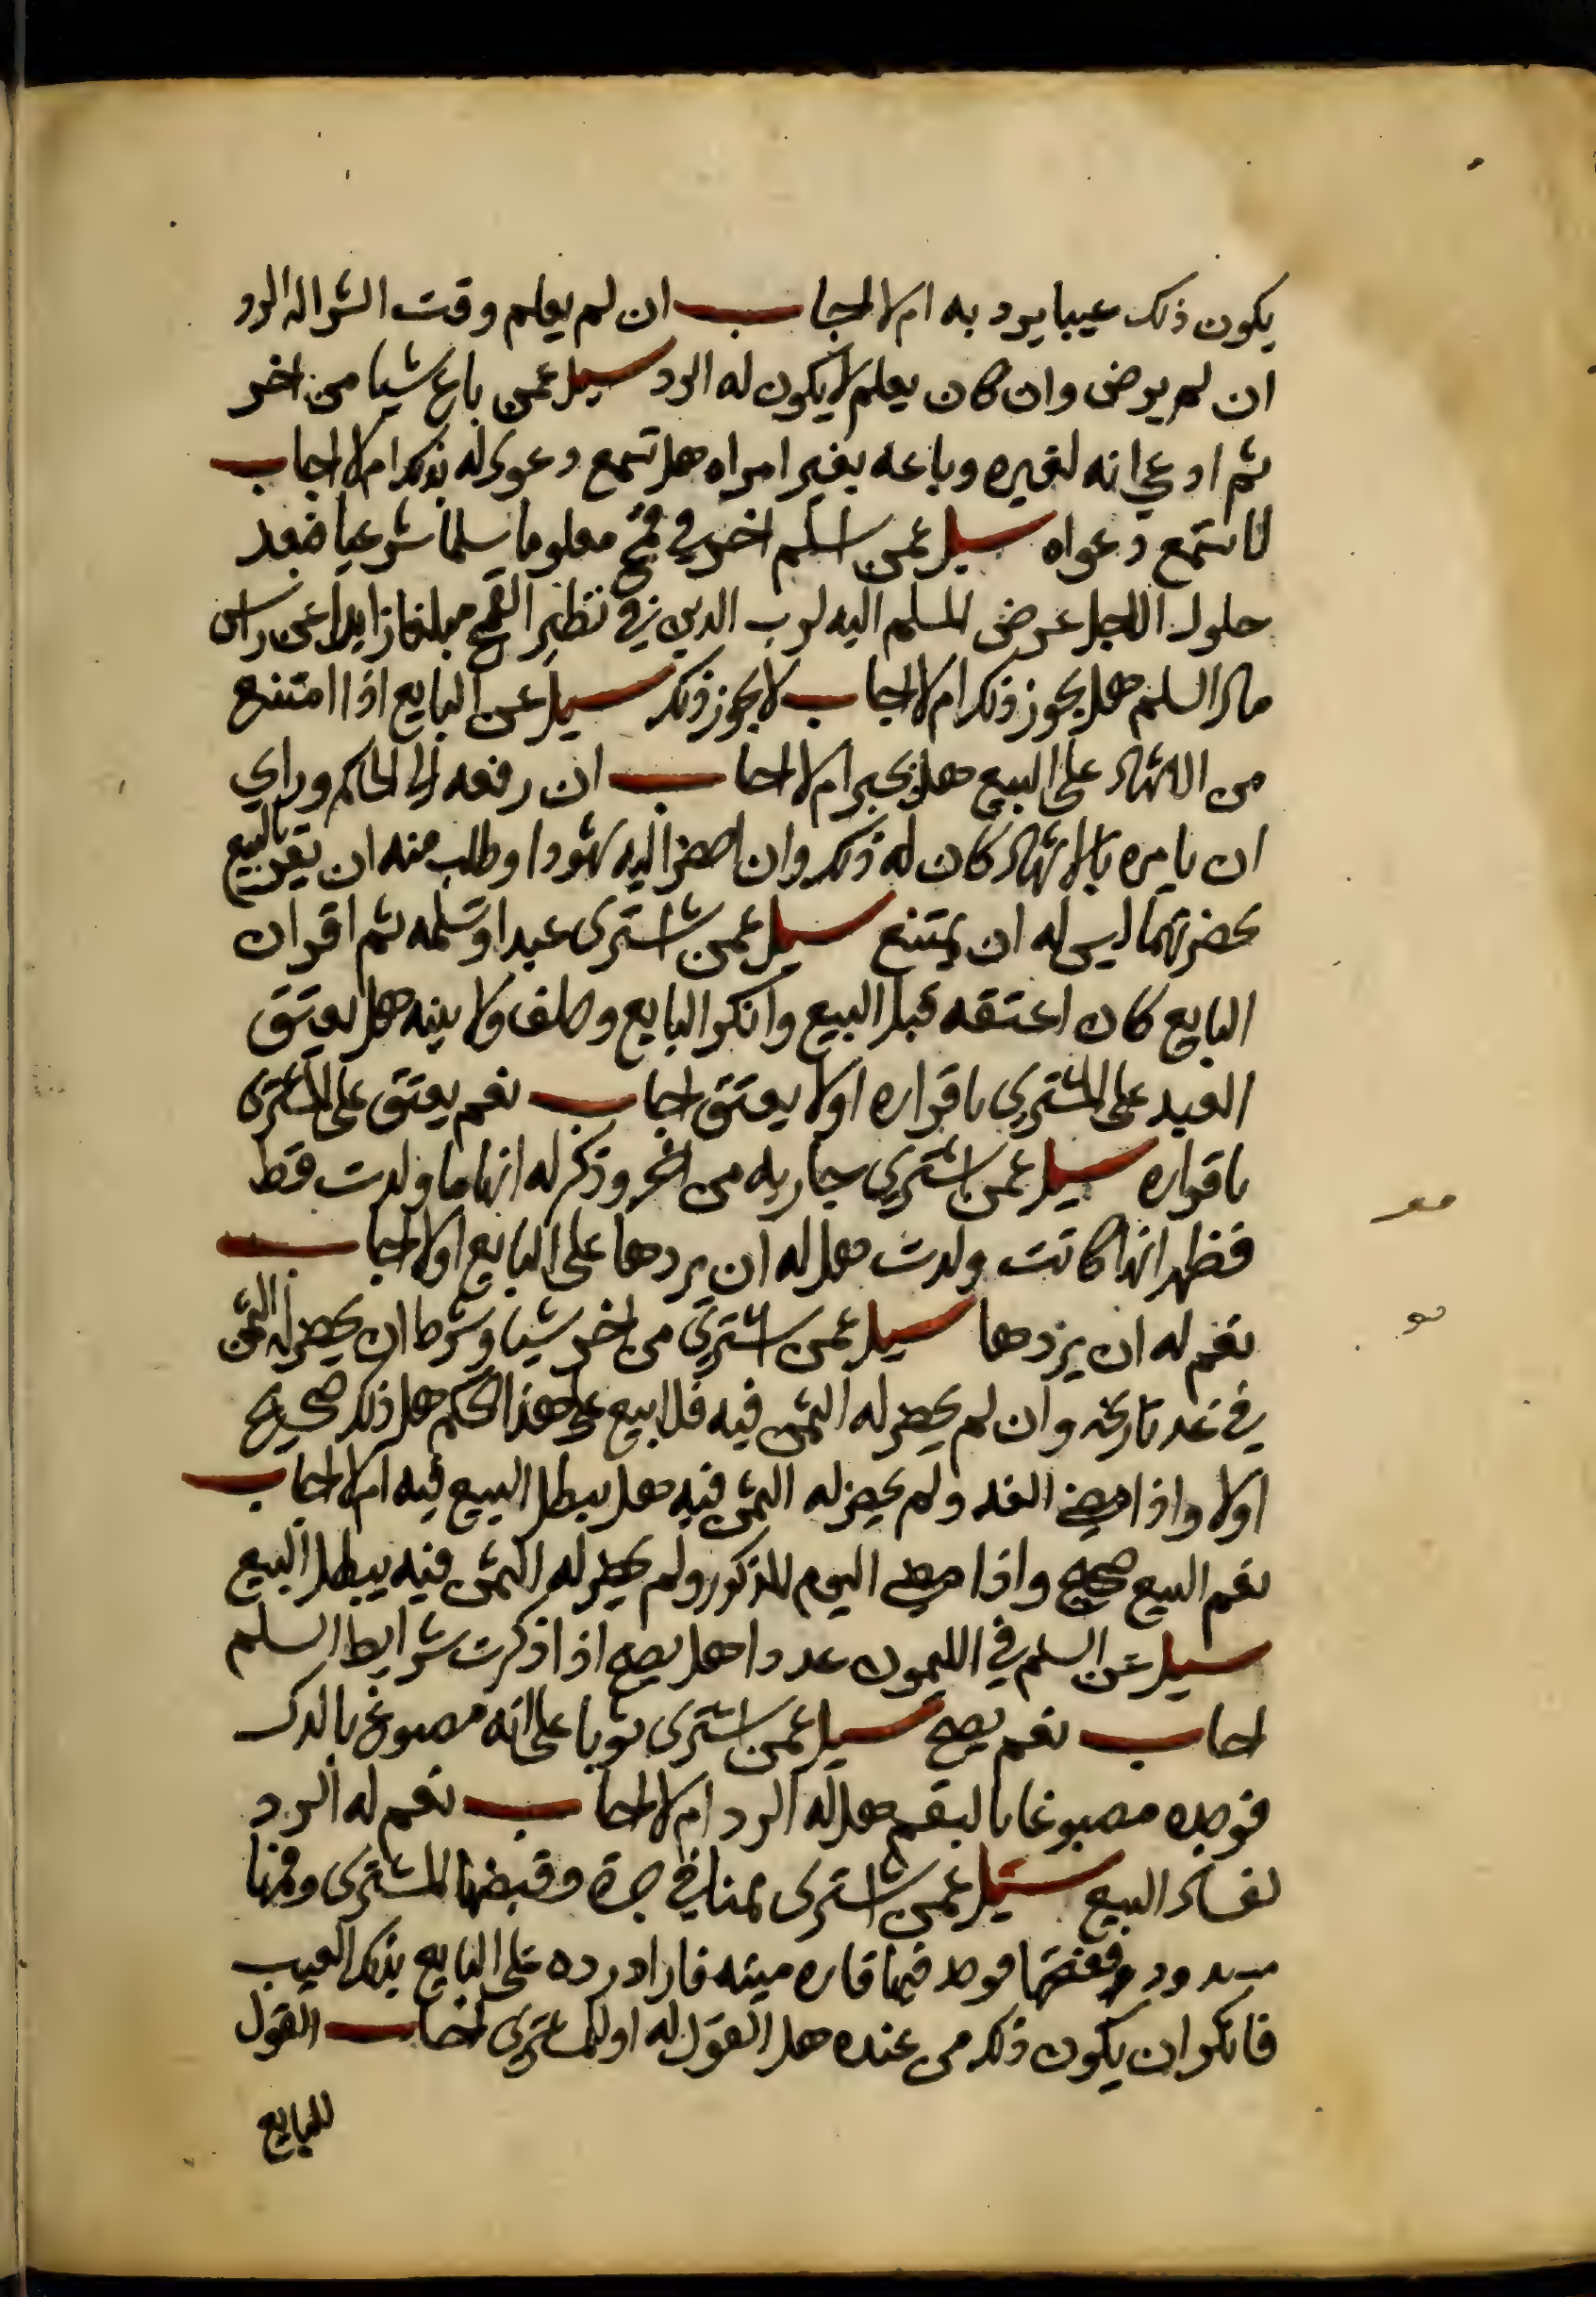 يكون ذلك عيبا يرد به ام لا اجاب ان لم يعلم وقت الشرا له الرد
ان لم يرض وان كان يعلم لا يكون له الرد سيل عمن باع شيا من اخر
ثم ادعي انه لغيره وباعه بغير امراه هل تسمع دعوى له بذلك ام لا اجاب
لا تسمع دعواه سيل عمن اسلم اخر في قمح معلوما سلما شرعيا فبعد
حلول الاجل عرض المسلم اليه لرب الدين في نظير القمح مبلغا زايدا عن راس
مال السلم هل يجوز ذلك ام لا اجاب لا يجوز ذلك سيل عن البايع اذا امتنع
من الاشهاد على البيع هل يجبر ام لا اجاب ان رفعه الى الحاكم وراي
ان يامره بالاشهاد كان له ذلك وان احضر اليه شهودا وطلب منه ان يقر بالبيع
بحضرتهما ليس له ان يمتنع سيل عمن اشترى عبدا وتسلمه ثم اقر ان
البايع كان اعتقه قبل البيع وانكر البايع وحلف ولا بينه هل يعتق
العبد على المشتري باقراره اولا يعتق اجاب نعم يعتق على المشترى
باقراره سيل عمن اشتري جاريه من اخر وذكر له انها ما ولدت قط
فظهر انها كانت ولدت هل له ان يردها على البايع اولا اجاب
نعم له ان يردها سيل عمن اشتري من اخر شيا وشرط ان يحضر له الثمن
في غد تاريخه وان لم يحضر له الثمن فيه فلا بيع على هذا الحكم هل ذلك صحيح
اولا واذا مضي الغد ولم يحضر له الثمن فيه هل يبطل البيع فيه ام لا اجاب
نعم البيع صحيح واذا مضي اليوم المذكور ولم يحضر له الثمن فيه يبطل البيع
سيل عن السلم في الليمون عددا هل يصح اذا ذكرت شرايط السلم
اجاب نعم يصح سيل عمن اشترى ثوبا على انه مصبوغ بالدك
فوجده مصبوغا بالبقم هل له الرد ام لا اجاب نعم له الرد
لفساد البيع سيل عمن اشترى سمنا في جرة وقبضها المشترى وفمها
مسدود ففتحها فوجد فيها فاره ميته فاراد رده على البايع بذلك العيب
فانكر ان يكون ذلك من عنده هل القول له او للمشتري اجاب القول
للبايع